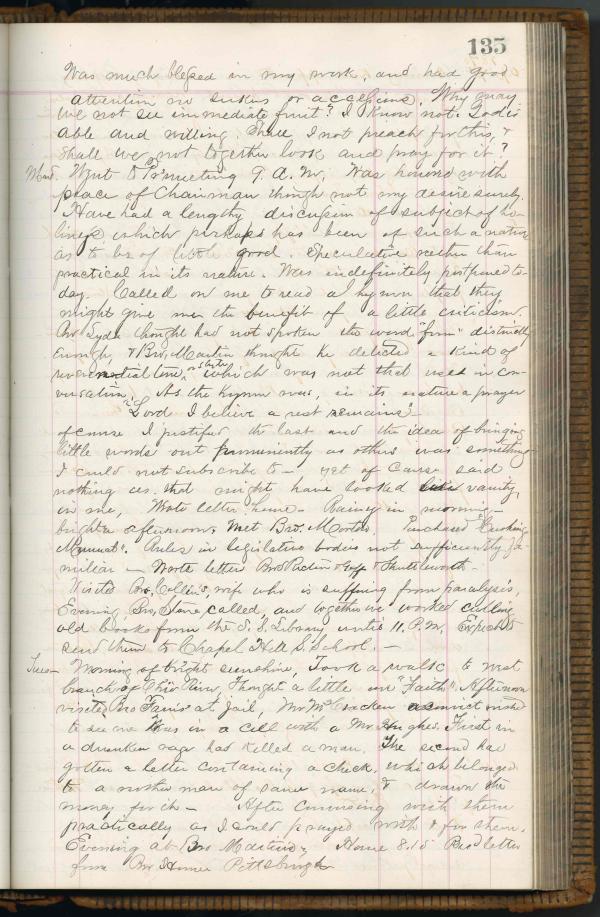 135
Was much blessed in my work, and had good
attention no seekers or accessions. Why may
we not see immediate fruit? I know not. God is
able and willing. Shall I not preach for this, &
shall we not together look and pray for it?
Mon. Went to Pr's meeting 9 A.M. Was honored with
place of Chairman though not my desire surely.
Have had a lengthy discussion of subject of ho-
liness which perhaps has been of such a nature
as to be of little good. Speculative rather than
practical in its nature. Was indefinitely postponed to-
day. Called on me to read a hymn that they
might give me the benefit of a little criticism.
Bro Lyda thought had not spoken the word "firm" distinctly
enough, & Bro. Martin thought he detected a kind of
reverential tone, or style which was not that used in con-
versation, As the hymn was, in its nature a prayer
"Lord I believe a rest remains" -
of course I justified the last and the idea of bringing
little words out prominently as others was something
I could not subscribe to - yet of course said
nothing as that might have looked like vanity
in me, Wrote letter home - Rainy in morning -
bright afternoon, Met Bro. Purchased "Cushing
Manual". Rules in legislative bodies not sufficiently fa-
miliar - Wrote letters Bros & & Shuttleworth -
Visited Bro. Collins, wife who is suffering from paralysis,
Evening Bro. Stone called, and together we worked culling
old books from the S. S. Library until 11. P.M. Expect to
send them to Chapel Hill S. School. -
Tues - Morning of bright sunshine, Took a walk to west
branch of Ohio River, Thought a little on "Faith". Afternoon
visited Bro Faris at Jail, Mr McCracken a convict wished
to see me Was in a cell with a Mr Hughes. First in
a drunken rage had killed a man, The second had
gotten a letter containing a check, which belonged
to another man of same name, & drawn the
money for it - After conversing with them
practically as I could prayed with & for them.
Evening at Bro Martin's, Home 8.15 Recd letter
from Bro Pittsburgh